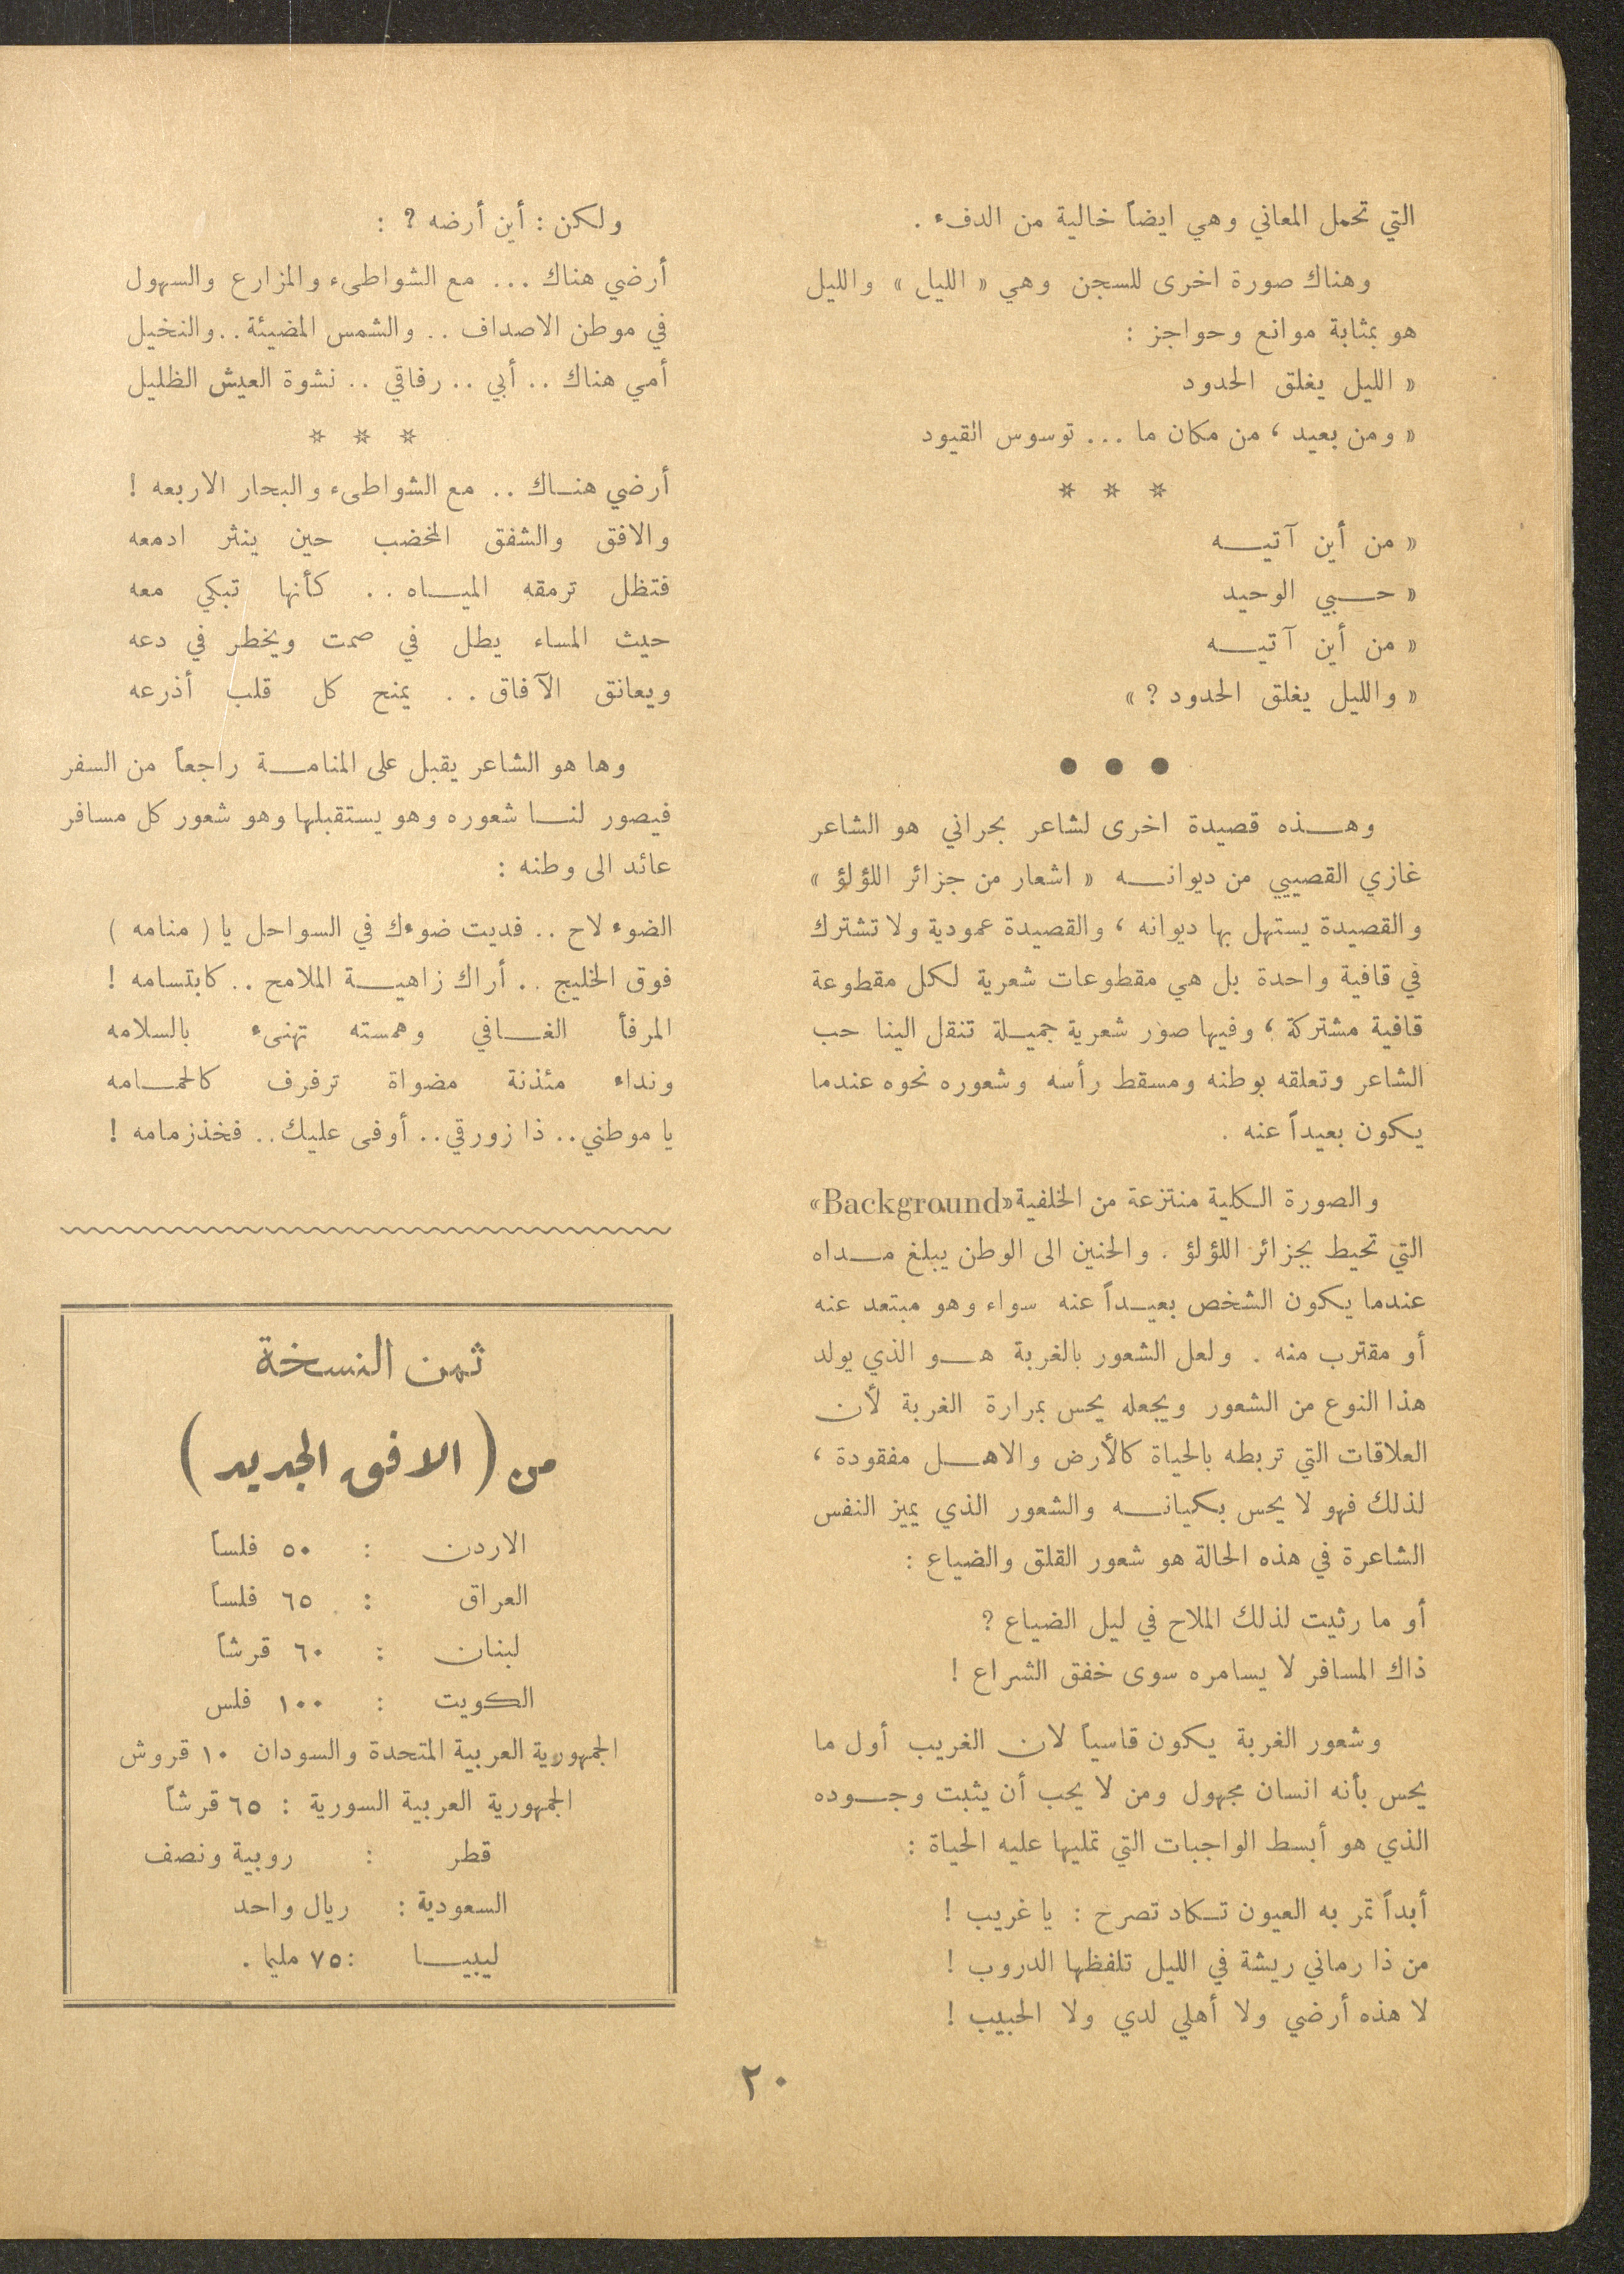 التي تحمل المعاني وهي ايضاً خالية من الدفء .
وهناك صورة اخرى للسجن وهي « الليل » والليل
هو بمثابة موانع وحواجز :
« الليل يغلق الحدود
« ومن بعيد ، من مكان ما ... توسوس القيود
* * *
« من أين آتيـــه
« حـــبي الوحيد
« من أين آتيـــه
« والليل يغلق الحدود ؟ »
● ● ●
وهـــذه قصيدة اخرى لشاعر بحراني هو الشاعر
غازي القصيبي من ديوانـــه « اشعار من جزائر اللؤلؤ »
والقصيدة يستهل بها ديوانه ، والقصيدة عمودية ولا تشترك
في قافية واحدة بل هي مقطوعات شعرية لكل مقطوعة
قافية مشتركة ، وفيها صور شعرية جميـــلة تنقل الينا حب
الشاعر وتعلقه بوطنه ومسقط رأسه وشعوره نحوه عندما
يكون بعيداً عنه .
والصورة الكلية منتزعة من الخلفية «Background»
التي تحيط بجزائر اللؤلؤ . والحنين الى الوطن يبلغ مـــداه
عندما يكون الشخص بعيـــداً عنه سواء وهو مبتعد عنه
أو مقترب منه . ولعل الشعور بالغربة هـــو الذي يولد
هذا النوع من الشعور ويجعله يحس بمرارة الغربة لأن
العلاقات التي تربطه بالحياة كالأرض والاهـــل مفقودة ،
لذلك فهو لا يحس بكيانـــه والشعور الذي يميز النفس
الشاعرة في هذه الحالة هو شعور القلق والضياع :
أو ما رثيت لذلك الملاح في ليل الضياع ؟
ذاك المسافر لا يسامره سوى خفق الشراع !
وشعور الغربة يكون قاسياً لان الغريب أول ما
يحس بأنه انسان مجهول ومن لا يحب أن يثبت وجـــوده
الذي هو أبسط الواجبات التي تمليها عليه الحياة :
أبداً تمر به العيون تكاد تصرخ : يا غريب !
من ذا رماني ريشة في الليل تلفظها الدروب !
لا هذه أرضي ولا أهلي لدي ولا الحبيب !
ولكن : أين أرضه ؟ :
أرضي هناك ... مع الشواطىء والمزارع والسهول
في موطن الاصداف .. والشمس المضيئة .. والنخيل
أمي هناك .. أبي .. رفاقي .. نشوة العيش الظليل
* * *
أرضي هنـــاك .. مع الشواطىء والبحار الاربعه !
والافق والشفق المخضب حين ينثر ادمعه
فتظل ترمقه الميـــاه .. كأنها تبكي معه
حيث المساء يطل في صمت ويخطر في دعه
ويعانق الآفاق .. يمنح كل قلب أذرعه
وها هو الشاعر يقبل على المنامـــة راجعاً من السفر
فيصور لنـــا شعوره وهو يستقبلها وهو شعور كل مسافر
عائد الى وطنه :
الضوء لاح .. فديت ضوءك في السواحل يا ( منامه )
فوق الخليج .. أراك زاهيـــة الملامح .. كابتسامه !
المرفأ الغـــافي وهمسته تهنىء بالسلامه
ونداء مئذنة مضواة ترفرف كالحمـــامه
يا موطني .. ذا زورقي .. أوفى عليك .. فخذ زمامه !
ثمن النسخة
من ( الافق الجديد )
الاردن : ٥٠ فلساً
العراق : ٦٥ فلساً
لبنان : ٦٠ قرشاً
الكويت : ١٠٠ فلس
الجمهورية العربية المتحدة والسودان ١٠ قروش
الجمهورية العربية السورية : ٦٥ قرشاً
قطر : روبية ونصف
السعودية : ريال واحد
ليبيـــا : ٧٥ مليما .
٢٠